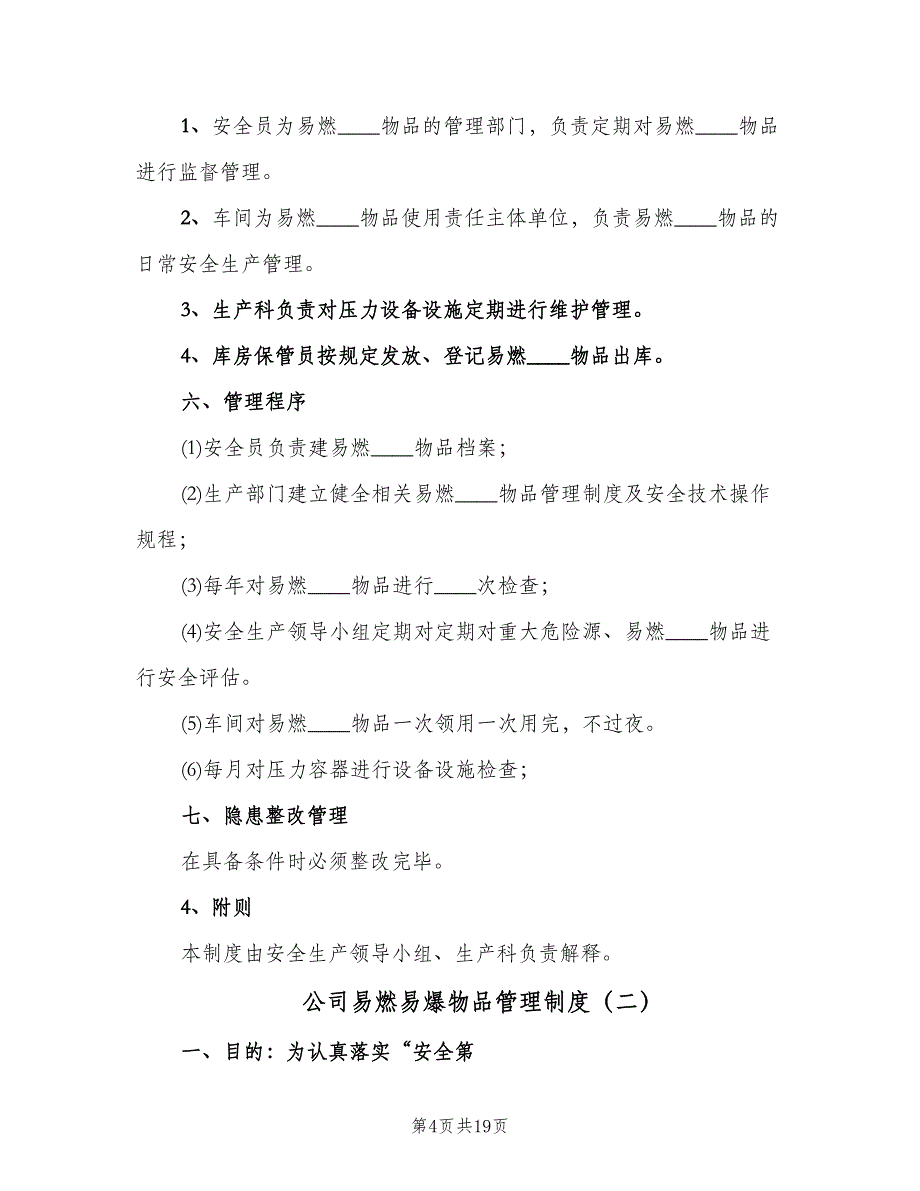 1、安全员为易燃____物品的管理部门，负责定期对易燃____物品
进行监督管理。
2、车间为易燃____物品使用责任主体单位，负责易燃____物品的
日常安全生产管理。
3、生产科负责对压力设备设施定期进行维护管理。
4、库房保管员按规定发放、登记易燃____物品出库。
六、管理程序
(1)安全员负责建易燃____物品档案；
(2)生产部门建立健全相关易燃____物品管理制度及安全技术操作
规程；
(3)每年对易燃____物品进行____次检查；
(4)安全生产领导小组定期对定期对重大危险源、易燃____物品进
行安全评估。
(5)车间对易燃____物品一次领用一次用完，不过夜。
(6)每月对压力容器进行设备设施检查；
七、隐患整改管理
在具备条件时必须整改完毕。
4、附则
本制度由安全生产领导小组、生产科负责解释。
公司易燃易爆物品管理制度（二）
一、目的：为认真落实“安全第
第4页共19页